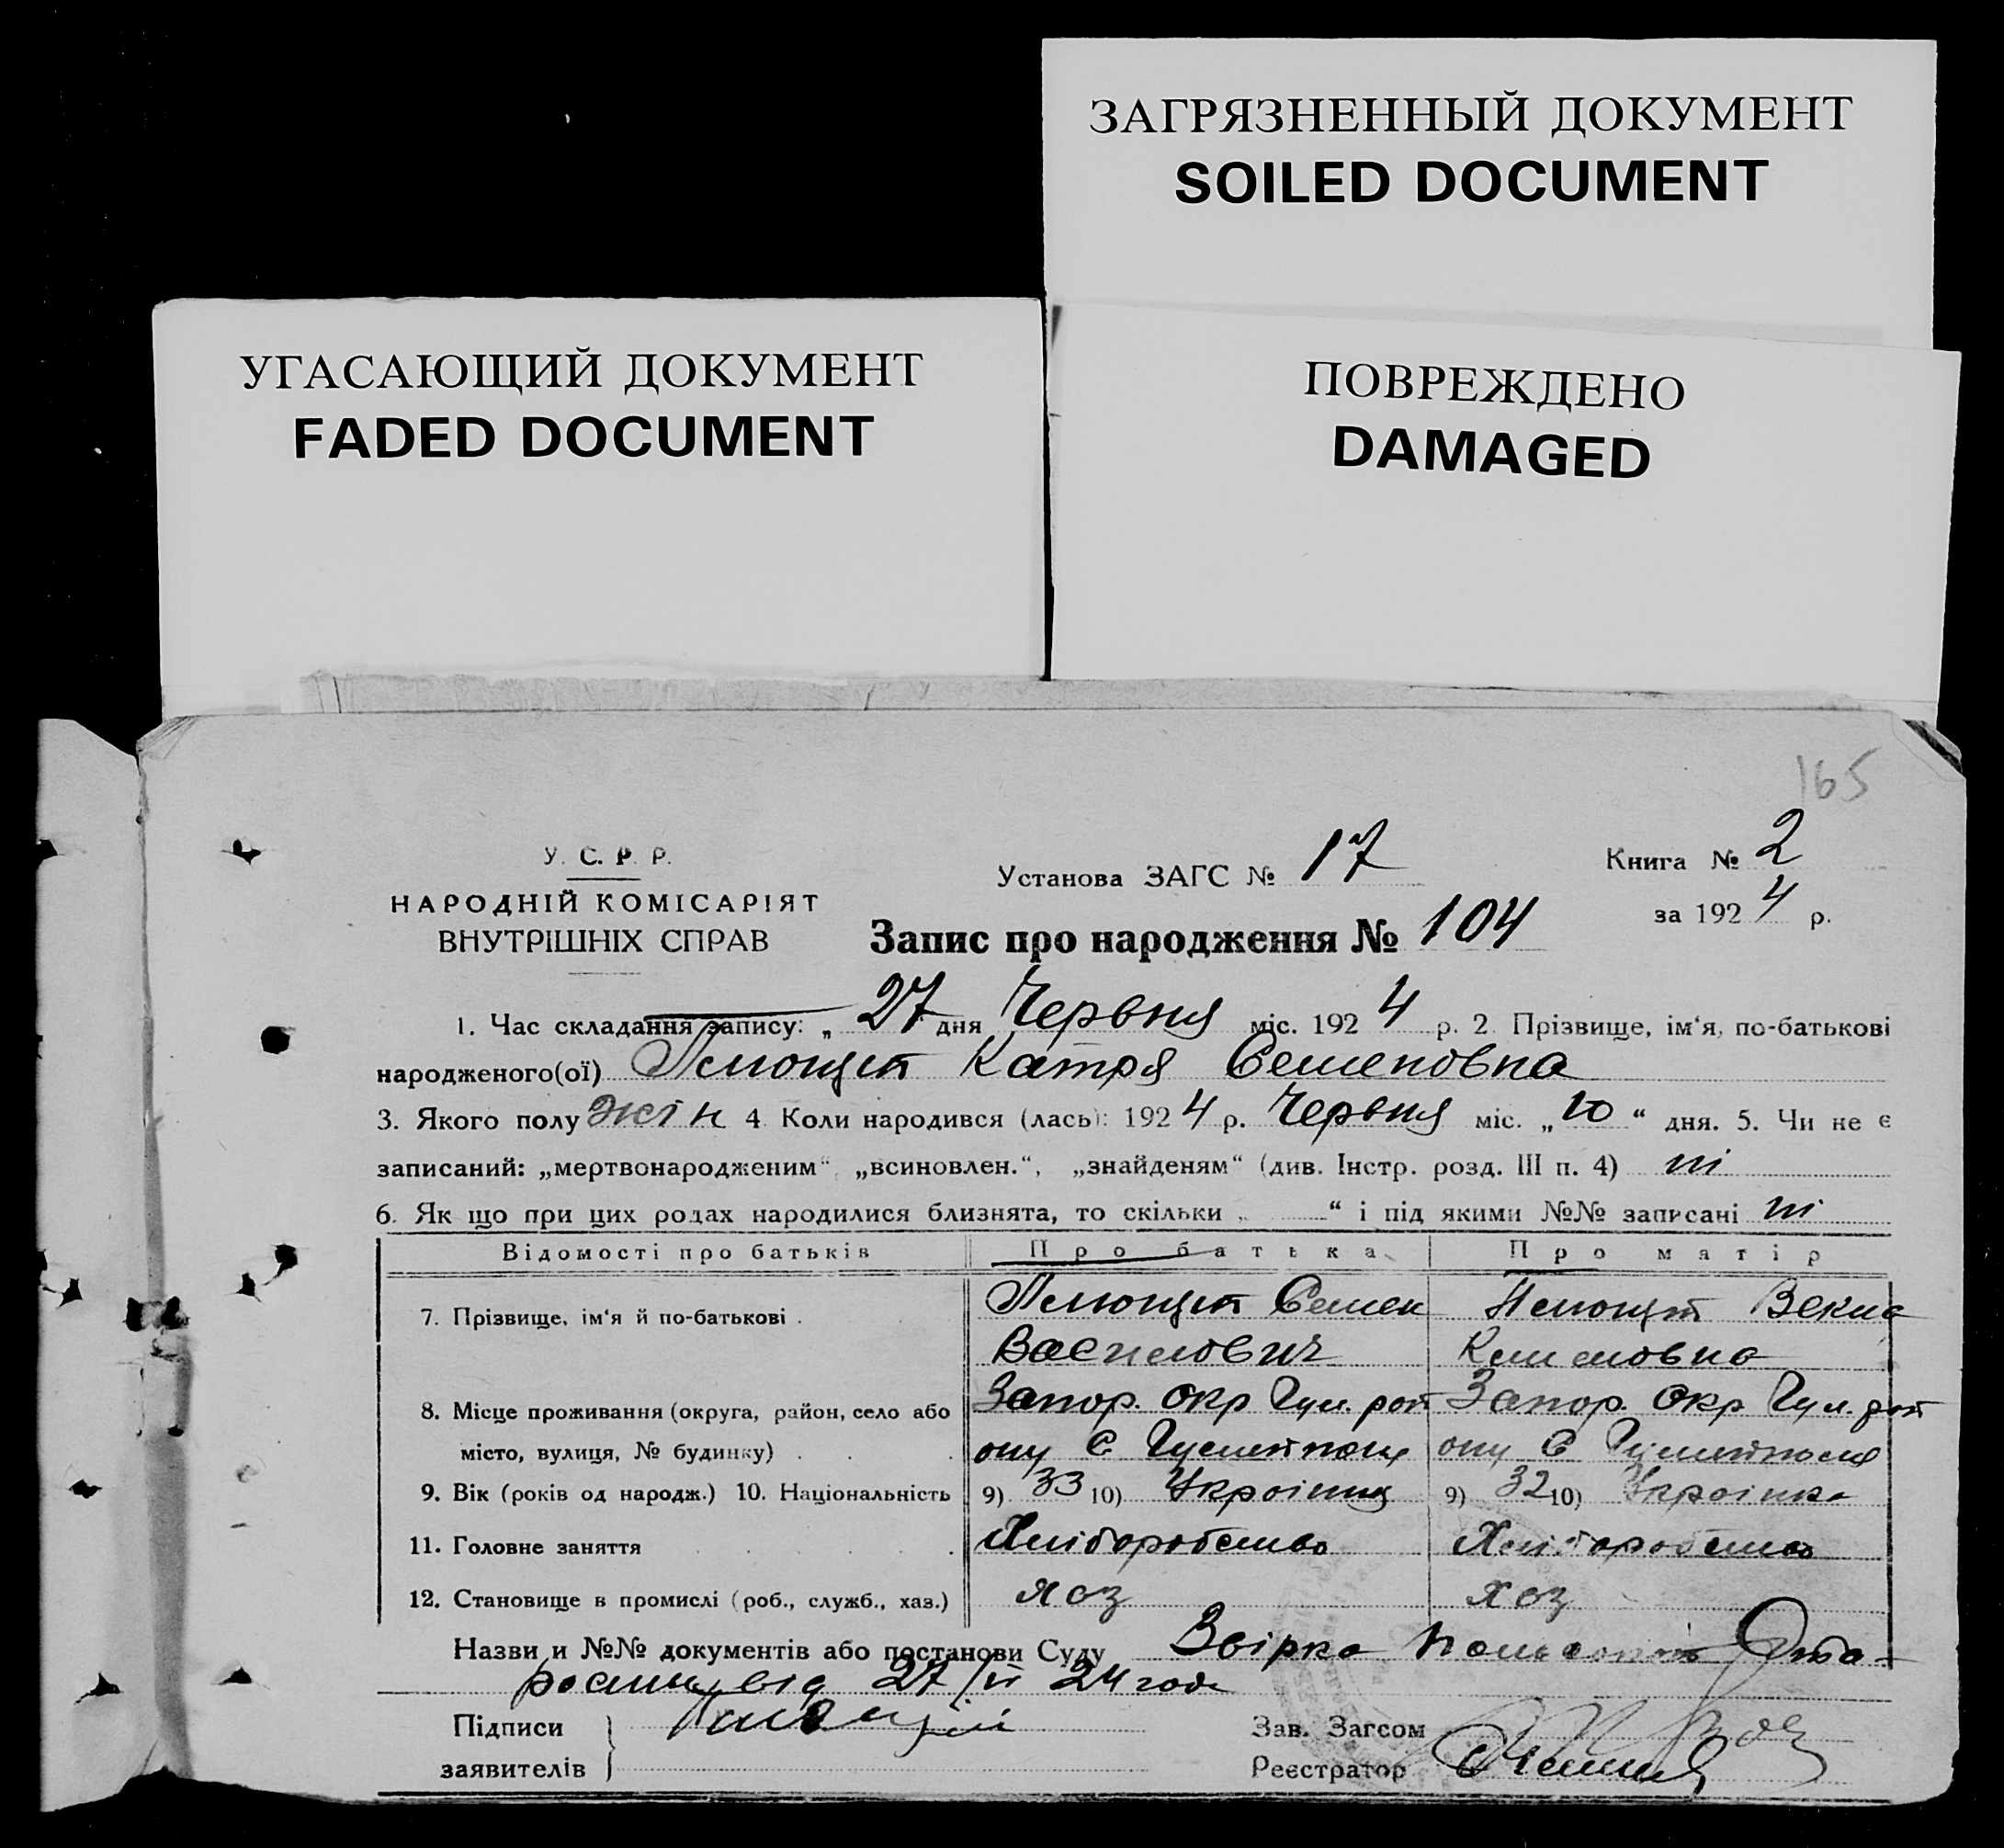 ЗАГРЯЗНЕННЫЙ ДОКУМЕНТ
SOILED DOCUMENT
УГАСАЮЩИЙ ДОКУМЕНТ
FADED DOCUMENT
ПОВРЕЖДЕНО
DAMAGED
165
У. С. Р. Р.
НАРОДНІЙ КОМІСАРІЯТ
ВНУТРІШНІХ СПРАВ
Установа ЗАГС № 17
Книга № 2
за 1924 р.
Запис про народження № 104
1. Час складання запису: „ 27 дня Червня міс. 1924 р. 2. Прізвище, ім'я, по-батькові
народженого(ої) Катря Семеновна
3. Якого полу жін 4. Коли народився (лась): 1924 р. Червня міс. „10“ дня. 5. Чи не є
записаний: „мертвонародженим“, „всиновлен.“, „знайденям“ (див. Інстр. розд. III п. 4) ні
6. Як що при цих родах народилися близнята, то скільки „ “ і під якими №№ записані ні
Відомості про батьків Про батька Про матір
7. Прізвище, ім'я й по-батькові . Семен
Василович
8. Місце проживання (округа, район, село або Запор. Окр Гул. рай Запор. Окр Гул. рай
місто, вулиця, № будинку) . . . ону С Гуляйполе ону С Гуляйполе
9. Вік (років од народж.) 10. Національність 9) 33 10) Україниц 9) 32 10) Українка
11. Головне заняття Хліборобство Хліборобство
12. Становище в промислі (роб., служб., хаз.) хоз хоз
Назви и №№ документів або постанови Суду Звірка
від 27/ 24 года
Підписи
заявителів
Зав. Загсом
Реєстратор